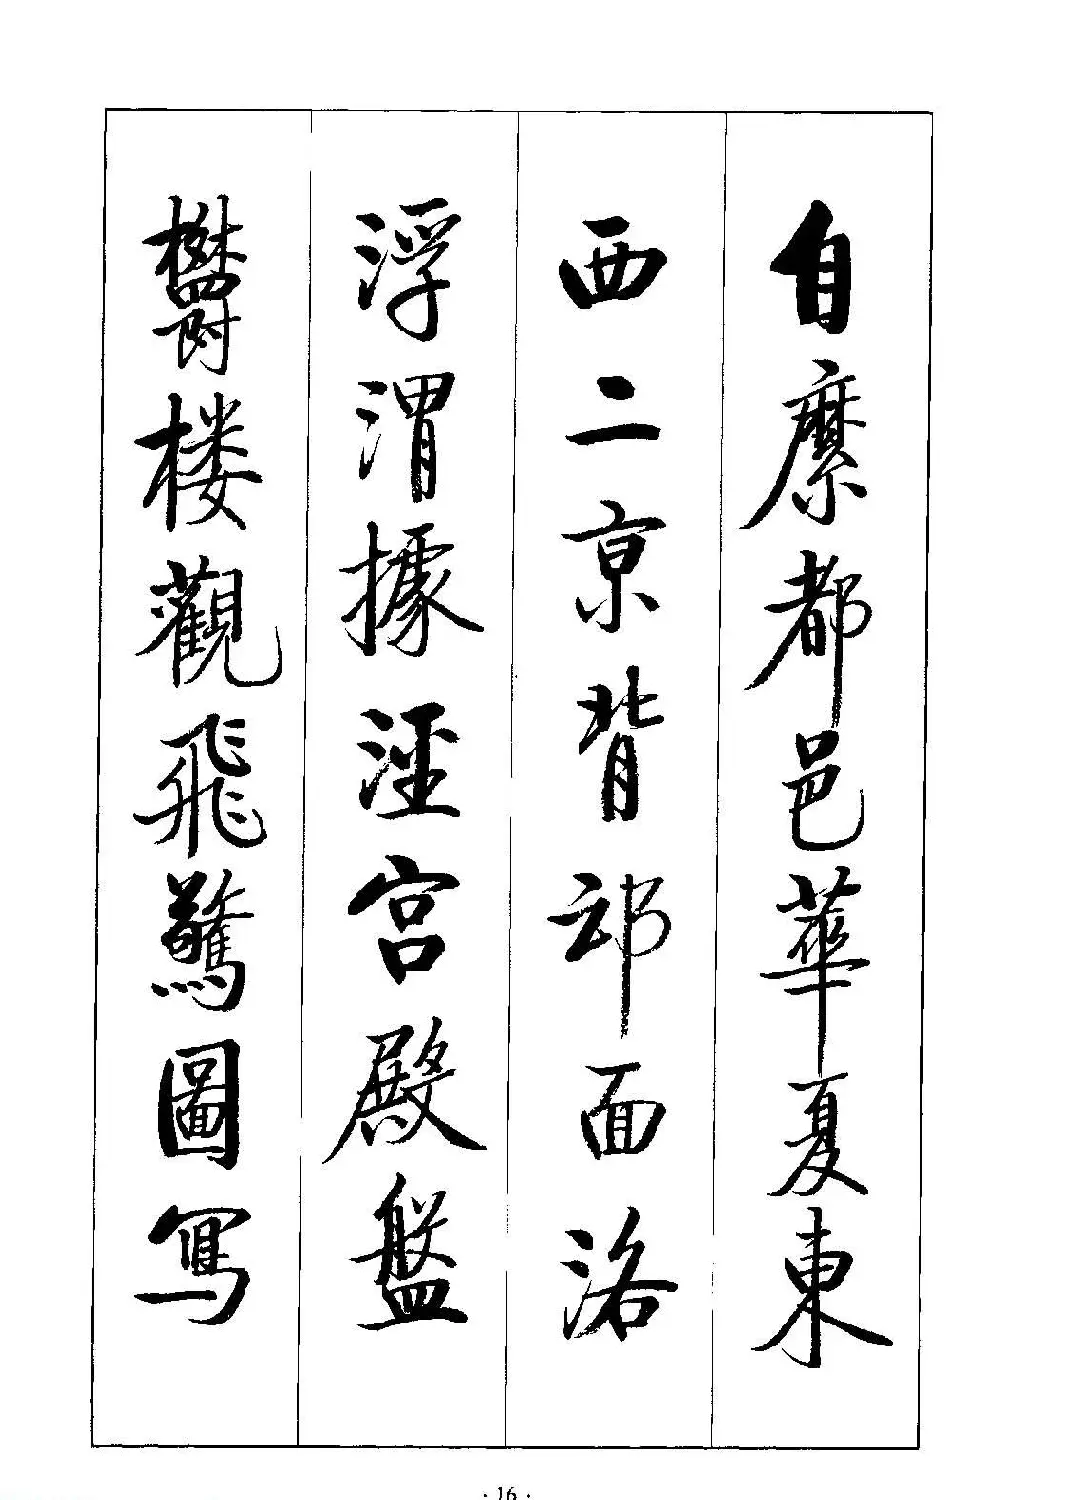 自縻都邑華夏東
西二京背邙面洛
浮渭據涇宫殿盤
欝楼觀飛驚圖寫
· 16 ·